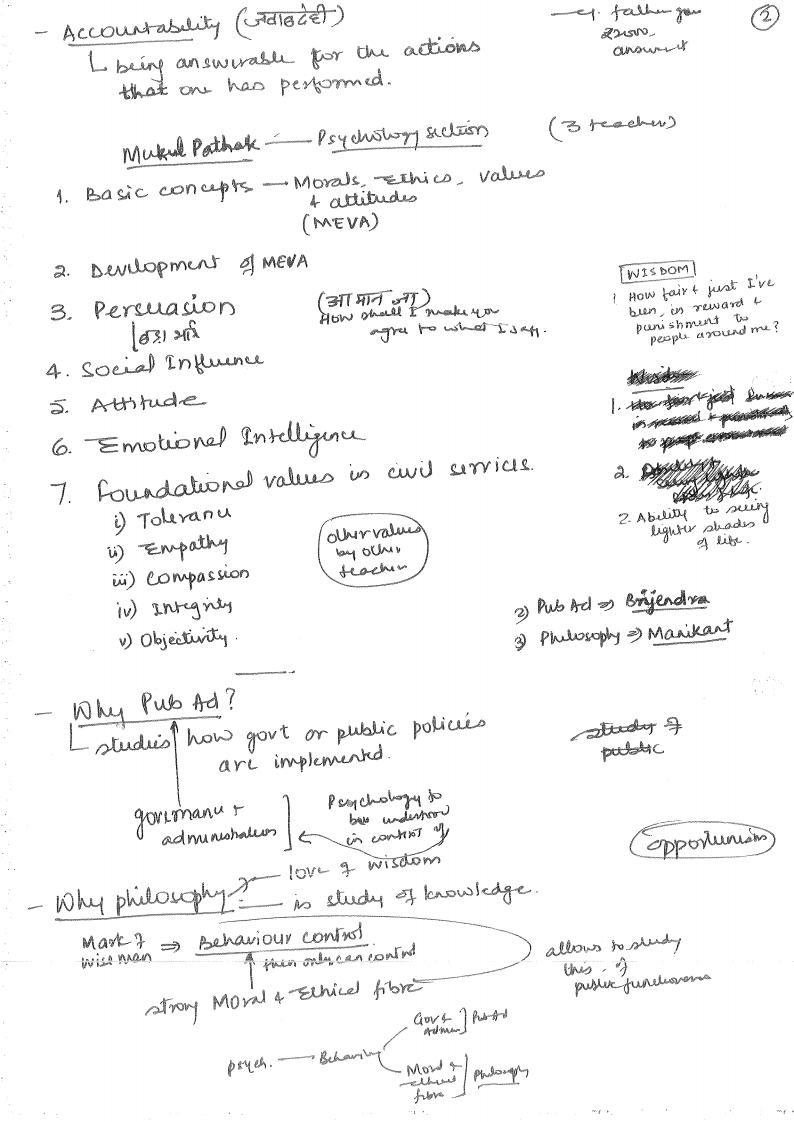 2
- Accountability (जवाबदेही)
eg. father gave
answer
└ being answerable for the actions
that one has performed.
Mukul Pathak — Psychology section (3 teacher)
1. Basic concepts — Morals, Ethics, values
& attitudes
(MEVA)
2. Development of MEVA
3. Persuasion (आ मान जा)
How shall I make you
agree to what I say.
बड़ा भाई
WISDOM
1. How fair & just I've
been, in reward &
punishment to
people around me?
4. Social Influence
5. Attitude
6. Emotional Intelligence
7. Foundational values in civil services.
i) Tolerance
ii) Empathy
iii) Compassion
iv) Integrity
v) Objectivity.
other values
by other
teacher
2. Ability to seeing
lighter shades
of life.
2) Pub Ad ⇒ Brijendra
3) Philosophy ⇒ Manikant
- Why Pub Ad?
└ studies how govt or public policies
are implemented.
study of
public
governance &
administration
Psychology to
be understood
in context of
opportunism
- Why philosophy — love of wisdom
— is study of knowledge.
Mark of
wise man ⇒ Behaviour control
then only can control
strong Moral & Ethical fibre
allows to study
this of
public functionaries
psych. — Behaviour
Gov &
Admin ] Pub Ad
Moral &
ethical
fibre ] Philosophy